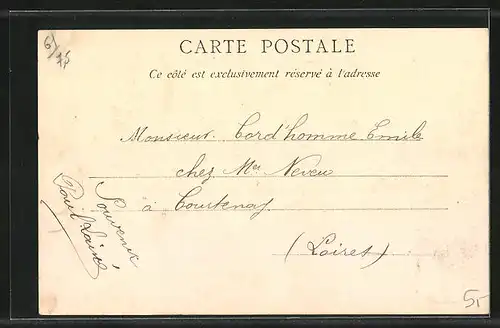 6/17
CARTE POSTALE
Ce côté est exclusivement réservé à l'adresse
Monsieur Cord'homme Emile
chez Mr Neveu
à Courtenay
(Loiret)
Souvenir
Paul
5,-